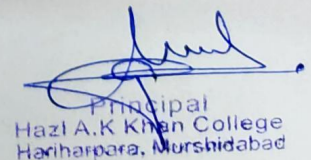 Principal
Hazi A.K Khan College
Hariharpara, Murshidabad